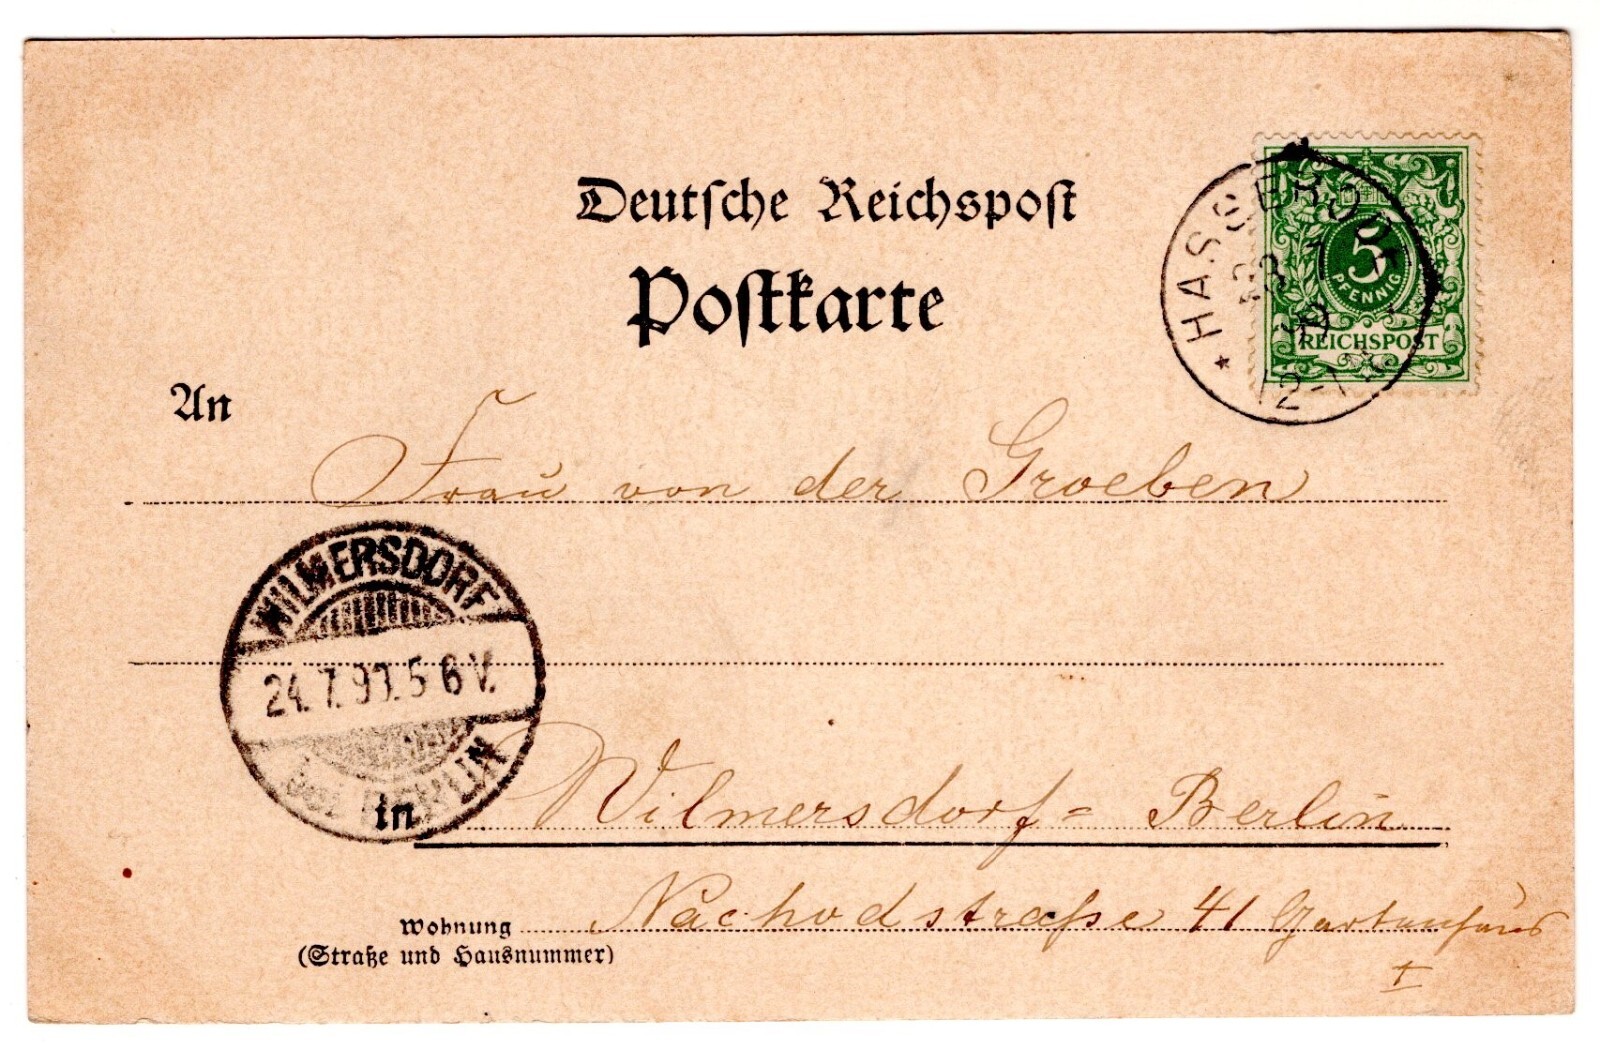 Deutsche Reichspost
Postkarte
* HASSERODE *
23 7
99
12-1
5
PFENNIG
REICHSPOST
An
Frau von der Groeben
WILMERSDORF
24.7.99.5 6 V.
BERLIN
in Wilmersdorf = Berlin
Wohnung Nachodstraße 41 Gartenhaus
(Straße und Hausnummer)
I